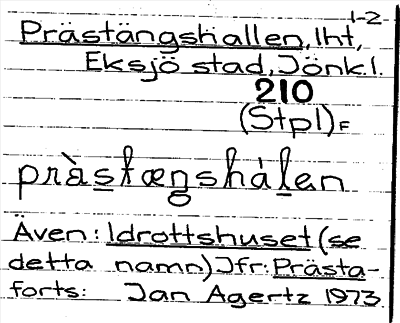 1-2
Prästängshallen, lht,
Eksjö stad, Jönk.l.
210
(Stpl)=
pràstængshàlen
Även: Idrottshuset (se
detta namn) Jfr: Prästa-
forts: Jan Agertz 1973